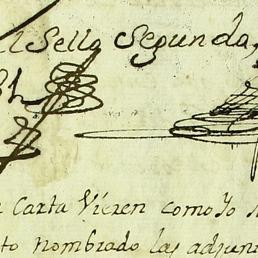 el Sello Segundo,
Carta Vieren como Yo
to nombrado las adjun